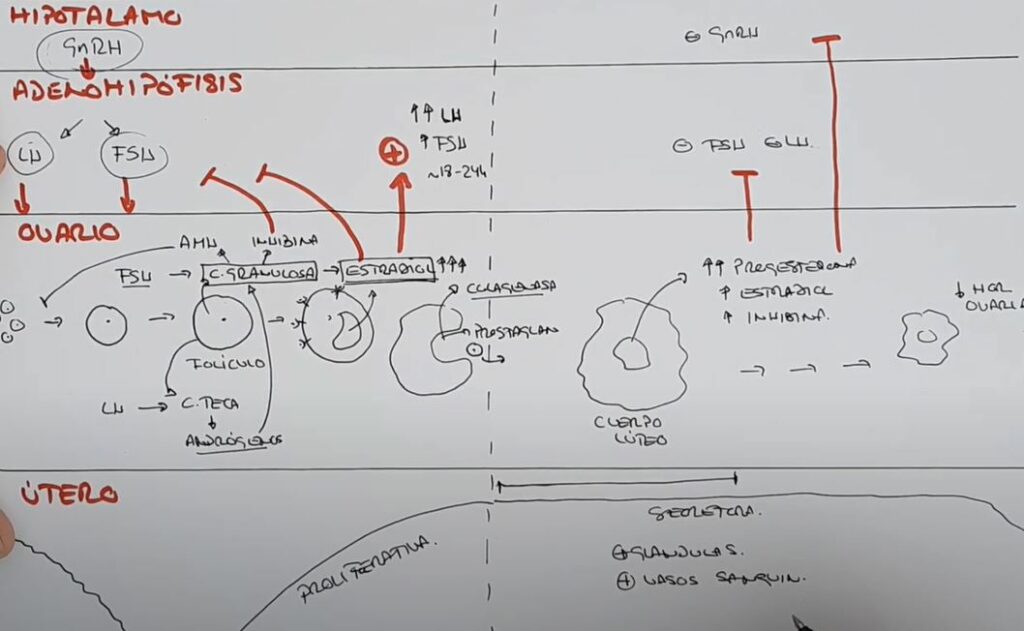 HIPOTALAMO
GnRH
⊖ GnRH
ADENOHIPÓFISIS
LH
FSH
↑↑ LH
↑ FSH
~18-24h
⊕
⊖ FSH ⊖ LH
OVARIO
AMH
INHIBINA
FSH → C.GRANULOSA → ESTRADIOL ↑↑↑
COLAGENASA
PROSTAGLAN
FOLÍCULO
LH → C.TECA
ANDRÓGENOS
↑↑ PROGESTERONA
↑ ESTRADIOL
↑ INHIBINA.
CUERPO
LÚTEO
↓ HOR
OVARICA
ÚTERO
PROLIFERATIVA.
SECRETORA.
⊕GLANDULAS.
⊕ VASOS SANGUIN.